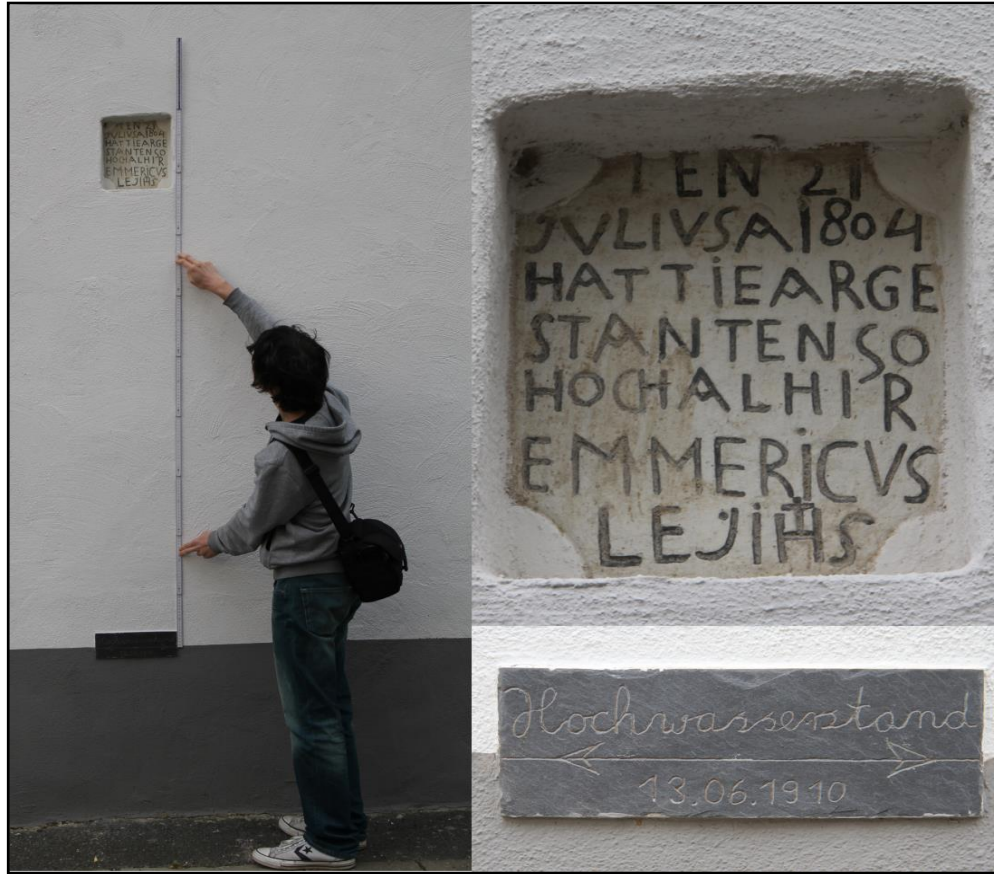 TEN 21
JVLIVSA1804
HATTIEARGE
STANTENSO
HOCHALHIR
EMMERICVS
LEJIHS
Hochwasserstand
13.06.1910